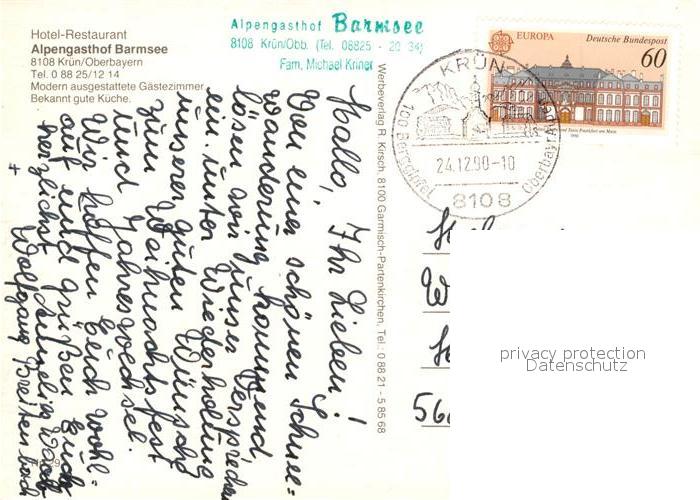 Hotel-Restaurant
Alpengasthof Barmsee
8108 Krün/Oberbayern
Tel. 0 88 25/12 14
Modern ausgestattete Gästezimmer
Bekannt gute Küche.
Alpengasthof Barmsee
8108 Krün/Obb. (Tel. 08825 - 20 34)
Fam. Michael Kriner
Werbeverlag R. Kirsch, 8100 Garmisch-Partenkirchen, Tel.: 0 88 21 - 5 85 68
EUROPA Deutsche Bundespost
60
KRÜN
100 Berggipfel
24.12.90-10
8108
Hallo, Ihr Lieben!
Von einer schönen Schnee=
wanderung kommend,
lösen wir unser Versprechen
ein unter Wiederholung
unserer guten Wünsche
zum Weihnachtsfest
und Jahreswechsel.
Wir hoffen Euch wohl=
auf und grüßen Euch
herzlichst
+ Wolfgang Breitenbach
privacy protection
Datenschutz